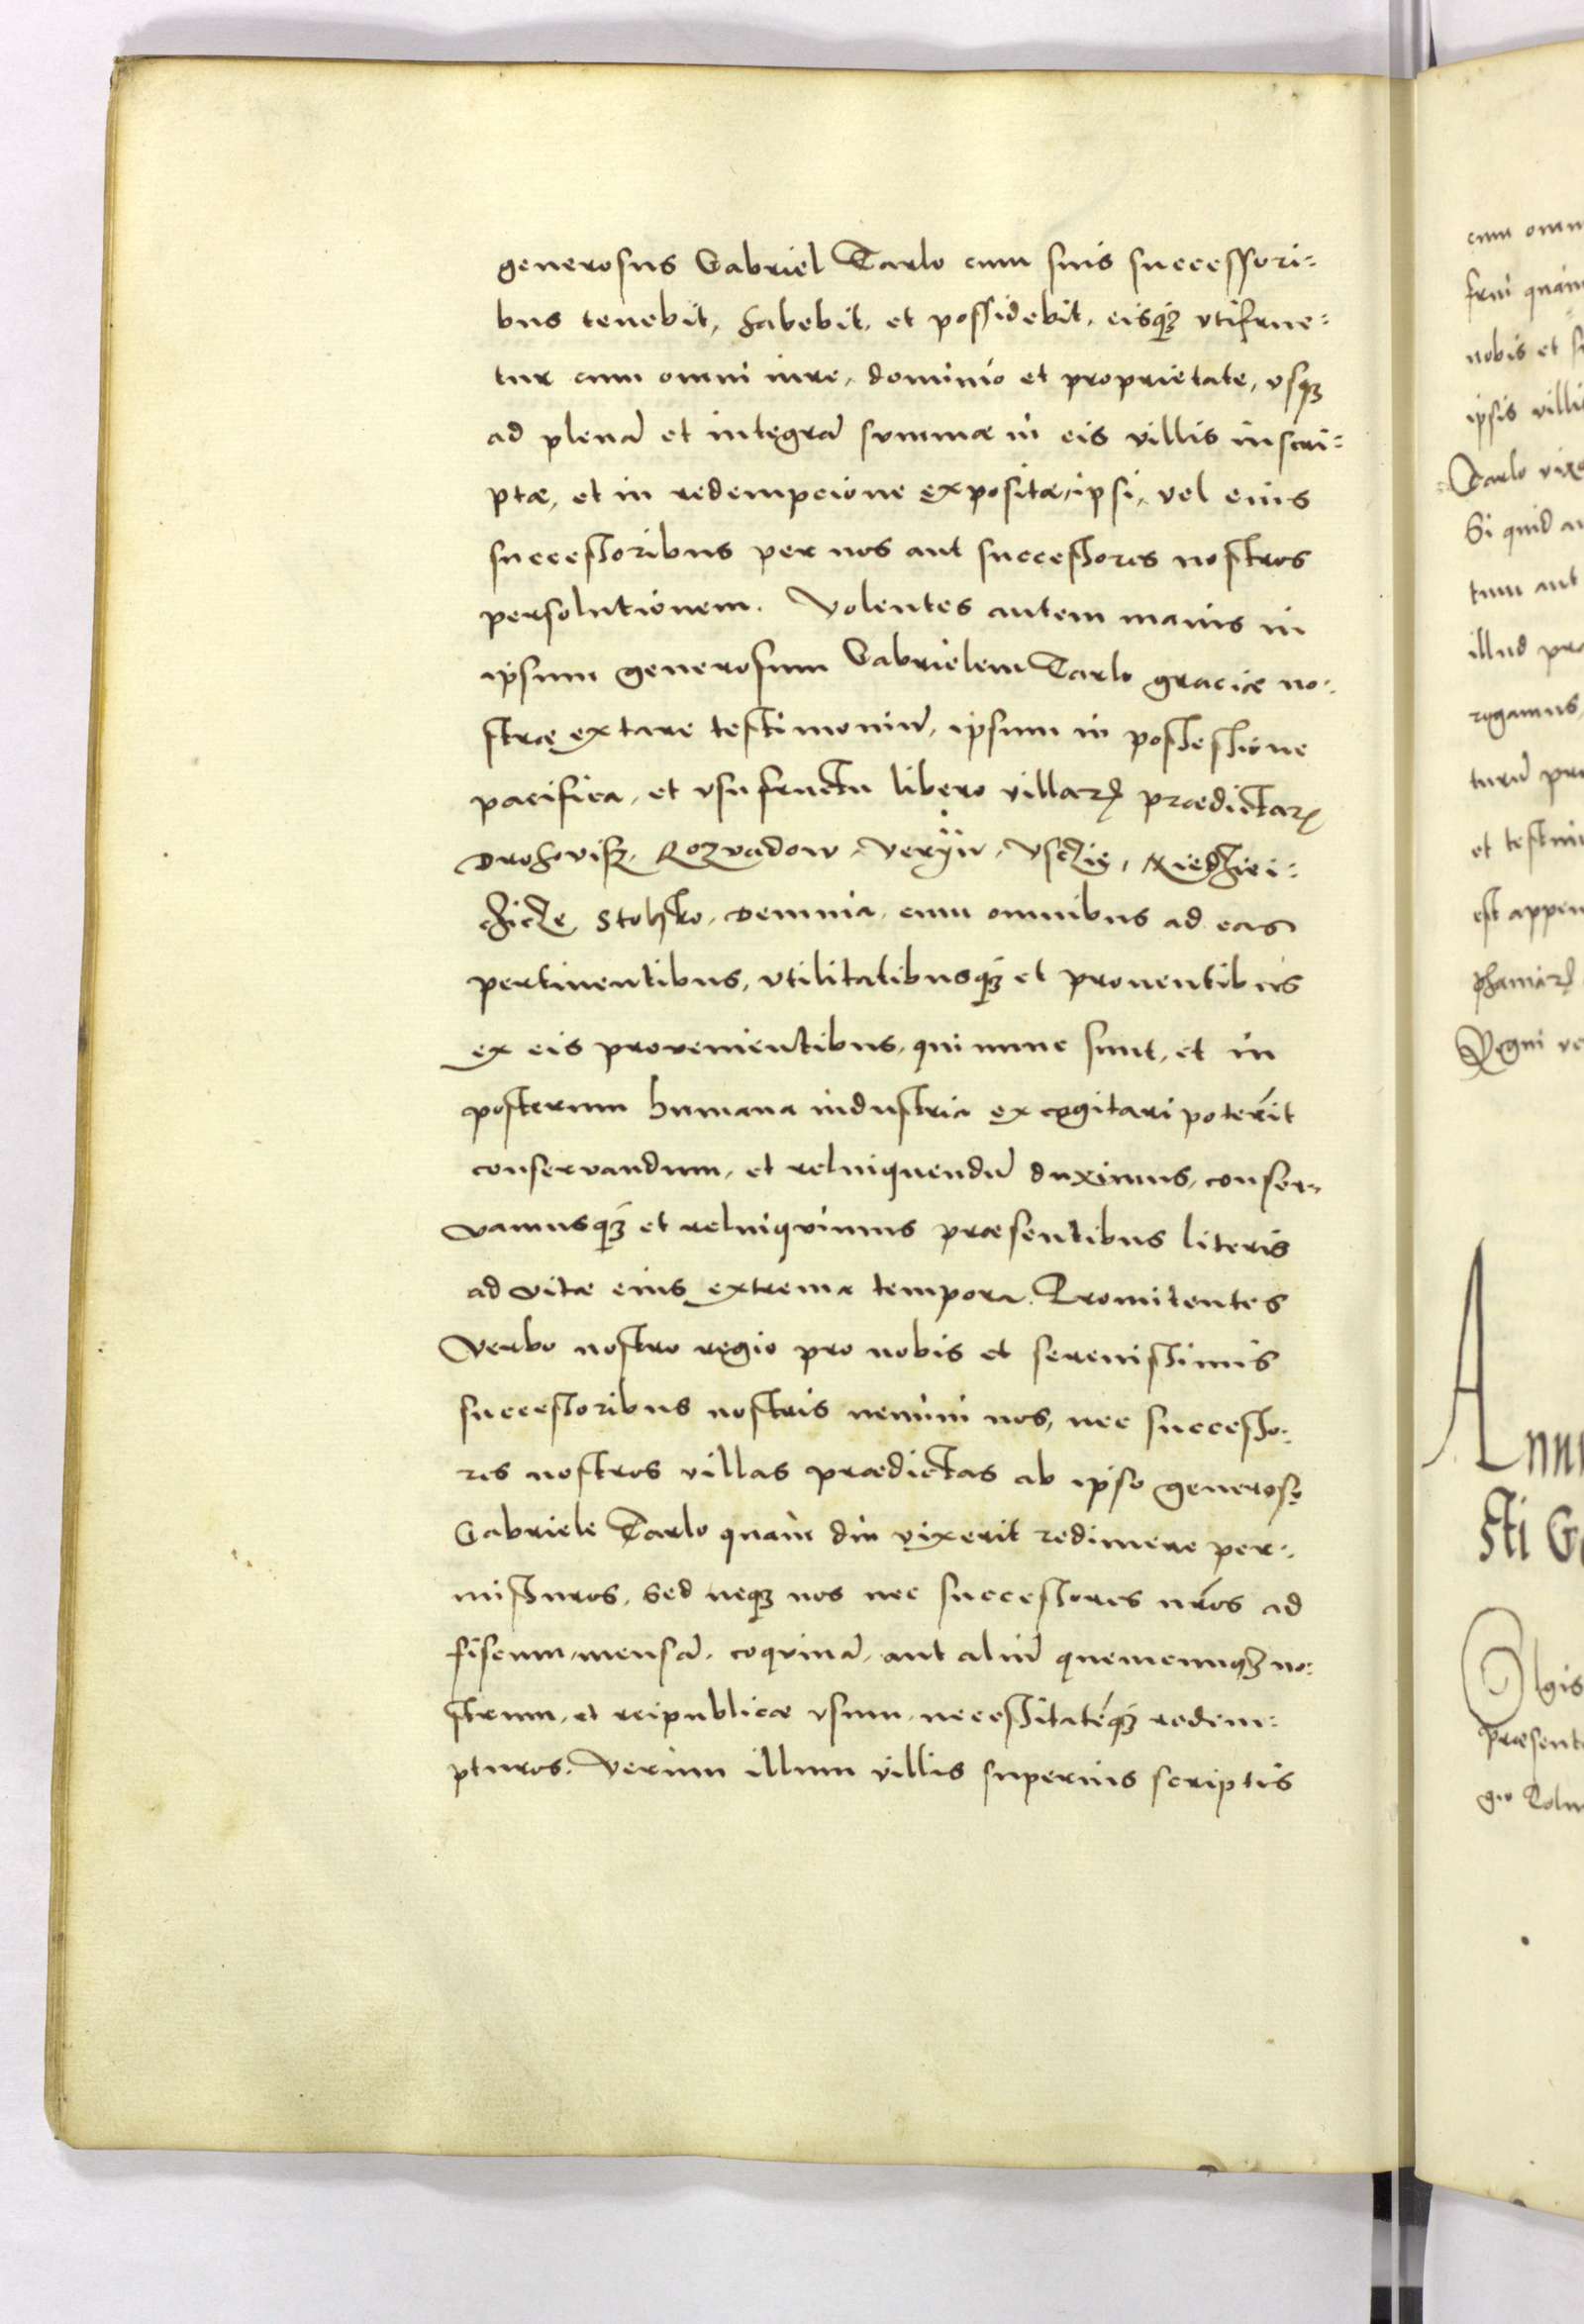 generosus Gabriel Tarlo cum suis successori=
bus tenebit, habebit, et possidebit, eisq₃ vtifrue=
tur cum omni iure, dominio et proprietate, vsq₃
ad plenã et integrã summæ in eis villis inscri=
ptæ, et in redempcione expositæ, ipsi, vel eius
successoribus per nos aut successores nostros
persolutionem. Volentes autem maius in
ipsum generosum Gabrielem Tarlo graciæ no=
stræ extare testimoniũ, ipsum in possessione
pacifica, et vsufructu libero villarꝝ prædictarꝝ
Drohovisz, Rozvadow, Veryn, Vsczie,
Stolsko, Demnia, cum omnibus ad eas
pertinentibus, vtilitatibusq₃ et prouentibus
ex eis provenientibus, qui nunc sunt, et in
posterum humana industria excogitari poterĩt
conservandum, et relinquendũ duximus, conser=
vamusq₃ et relinquimus præsentibus literis
ad vitæ eius extrema tempora. Promitentes
Verbo nostro regio pro nobis et serenissimis
successoribus nostris nemini nos, nec successo=
res nostros villas prædictas ab ipso generoso
Gabriele Tarlo quam diu vixerit redimere per=
missuros, sed neq₃ nos nec successores nr̃os ad
fiscum, mensã, coquinã, aut aliũ quemcunq₃ no=
strum, et reipublicæ vsum, necessitatéq₃ redem=
pturos. Verum illum villis superius scriptis
cum omn
frui quam
nobis et
ipsis villi
Tarlo vixe
Si quid a
tum aut
illud pro
rogamus,
turũ pr
et testim
est appen
Regni ve
Annu
sti G
præsent